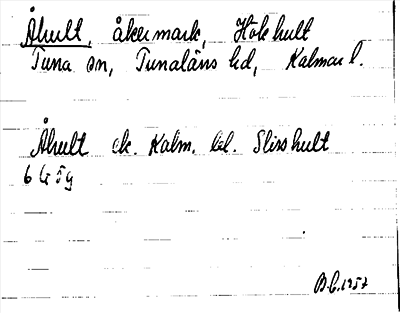 Åhult, åkermark, Hökhult
Tuna sn, Tunaläns hd, Kalmar l.
Åhult ek. Kalm. bl. Slisshult
6 G ö g
B.C. 1957